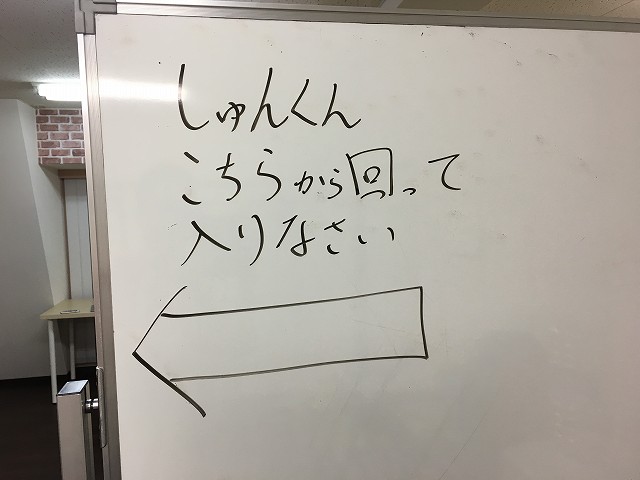 しゅんくん
こちらから回って
入りなさい